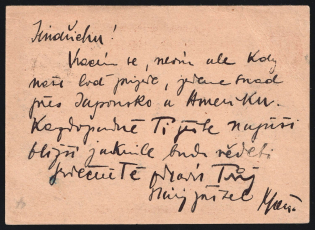 Jindřichu!
Vracím se, nevím ale kdy
naše loď přijede, jedeme snad
přes Japonsko a Ameriku.
Každopádně Ti ještě napíši
bližší jakmile budu věděti
Srdečně Tě zdraví Tvůj
starý přítel